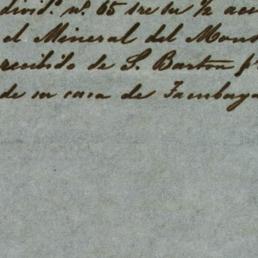 divid.º n.º 65 de su ½ acc
el Mineral del Mon
recibido de S. Barton p
de su casa de Tambaya